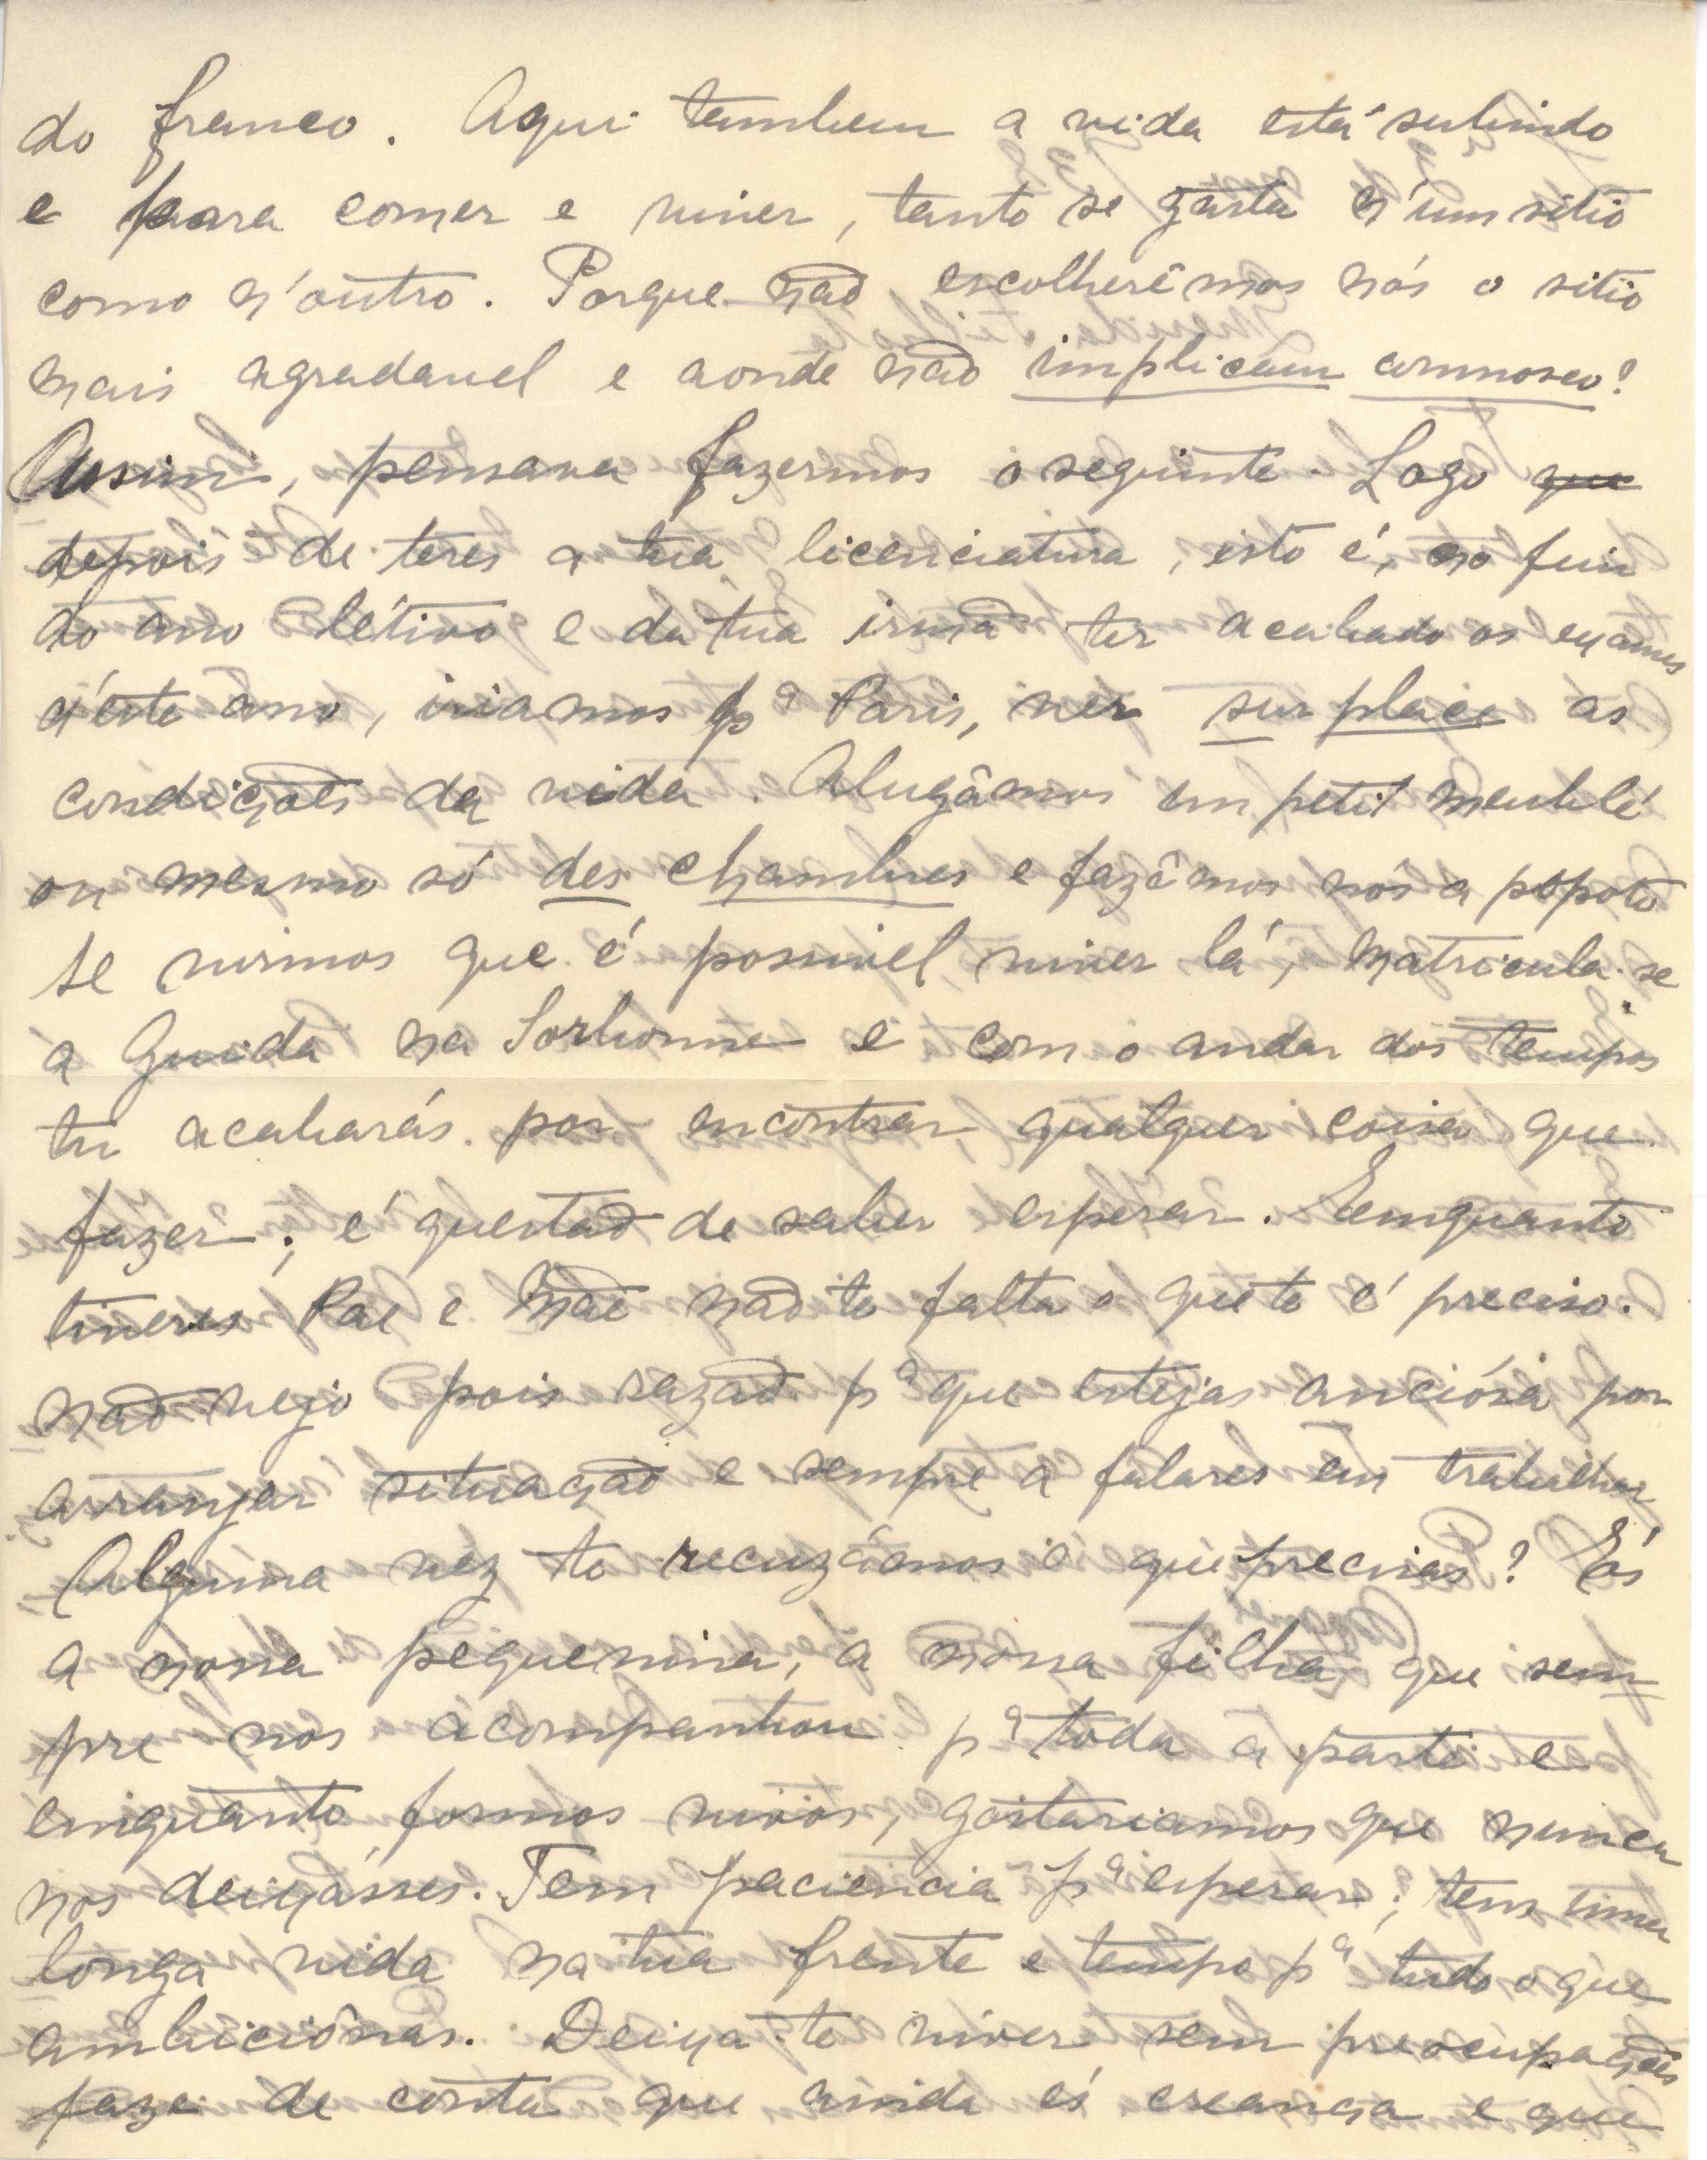 do franco. Aqui tambem a vida está subindo
e para comer e viver, tanto se gasta n'um sitio
como n'outro. Porque não escolherêmos nós o sitio
mais agradavel e aonde não implicam comnosco?
Assim, pensava fazermos o seguinte. Logo que
depois de teres a tua licenciatura, isto é, no fim
do ano létivo e da tua irmã ter acabado os exames
d'este ano, iriamos pª Paris, ver sur place as
condições da vida. Alugâmos um petit meublé
ou mesmo só des chambres e fazêmos nós a popote
se virmos que é possivel viver lá, matricula-se
a Guida na Sorbonne e com o andar dos tempos
tu acabarás por encontrar qualquer coisa que
fazer; é questão de saber esperar. Emquanto
tiveres Pae e Mãe não te falta o que te é preciso.
Não vejo pois razão pª que estejas anciósa por
arranjar situação e sempre a falares em trabalhar
Alguma vez te recuzámos o que precisas? És
a nossa pequenina, a nossa filha que sem
pre nos acompanhou pª toda a parte e
emquanto formos vivos, gostariamos que nunca
nos deixásses. Tem paciencia pª esperar; tens uma
longa vida na tua frente e tempo pª tudo o que
ambiciônas. Deixa-te viver sem preocupações
faze de conta que ainda és creança e que